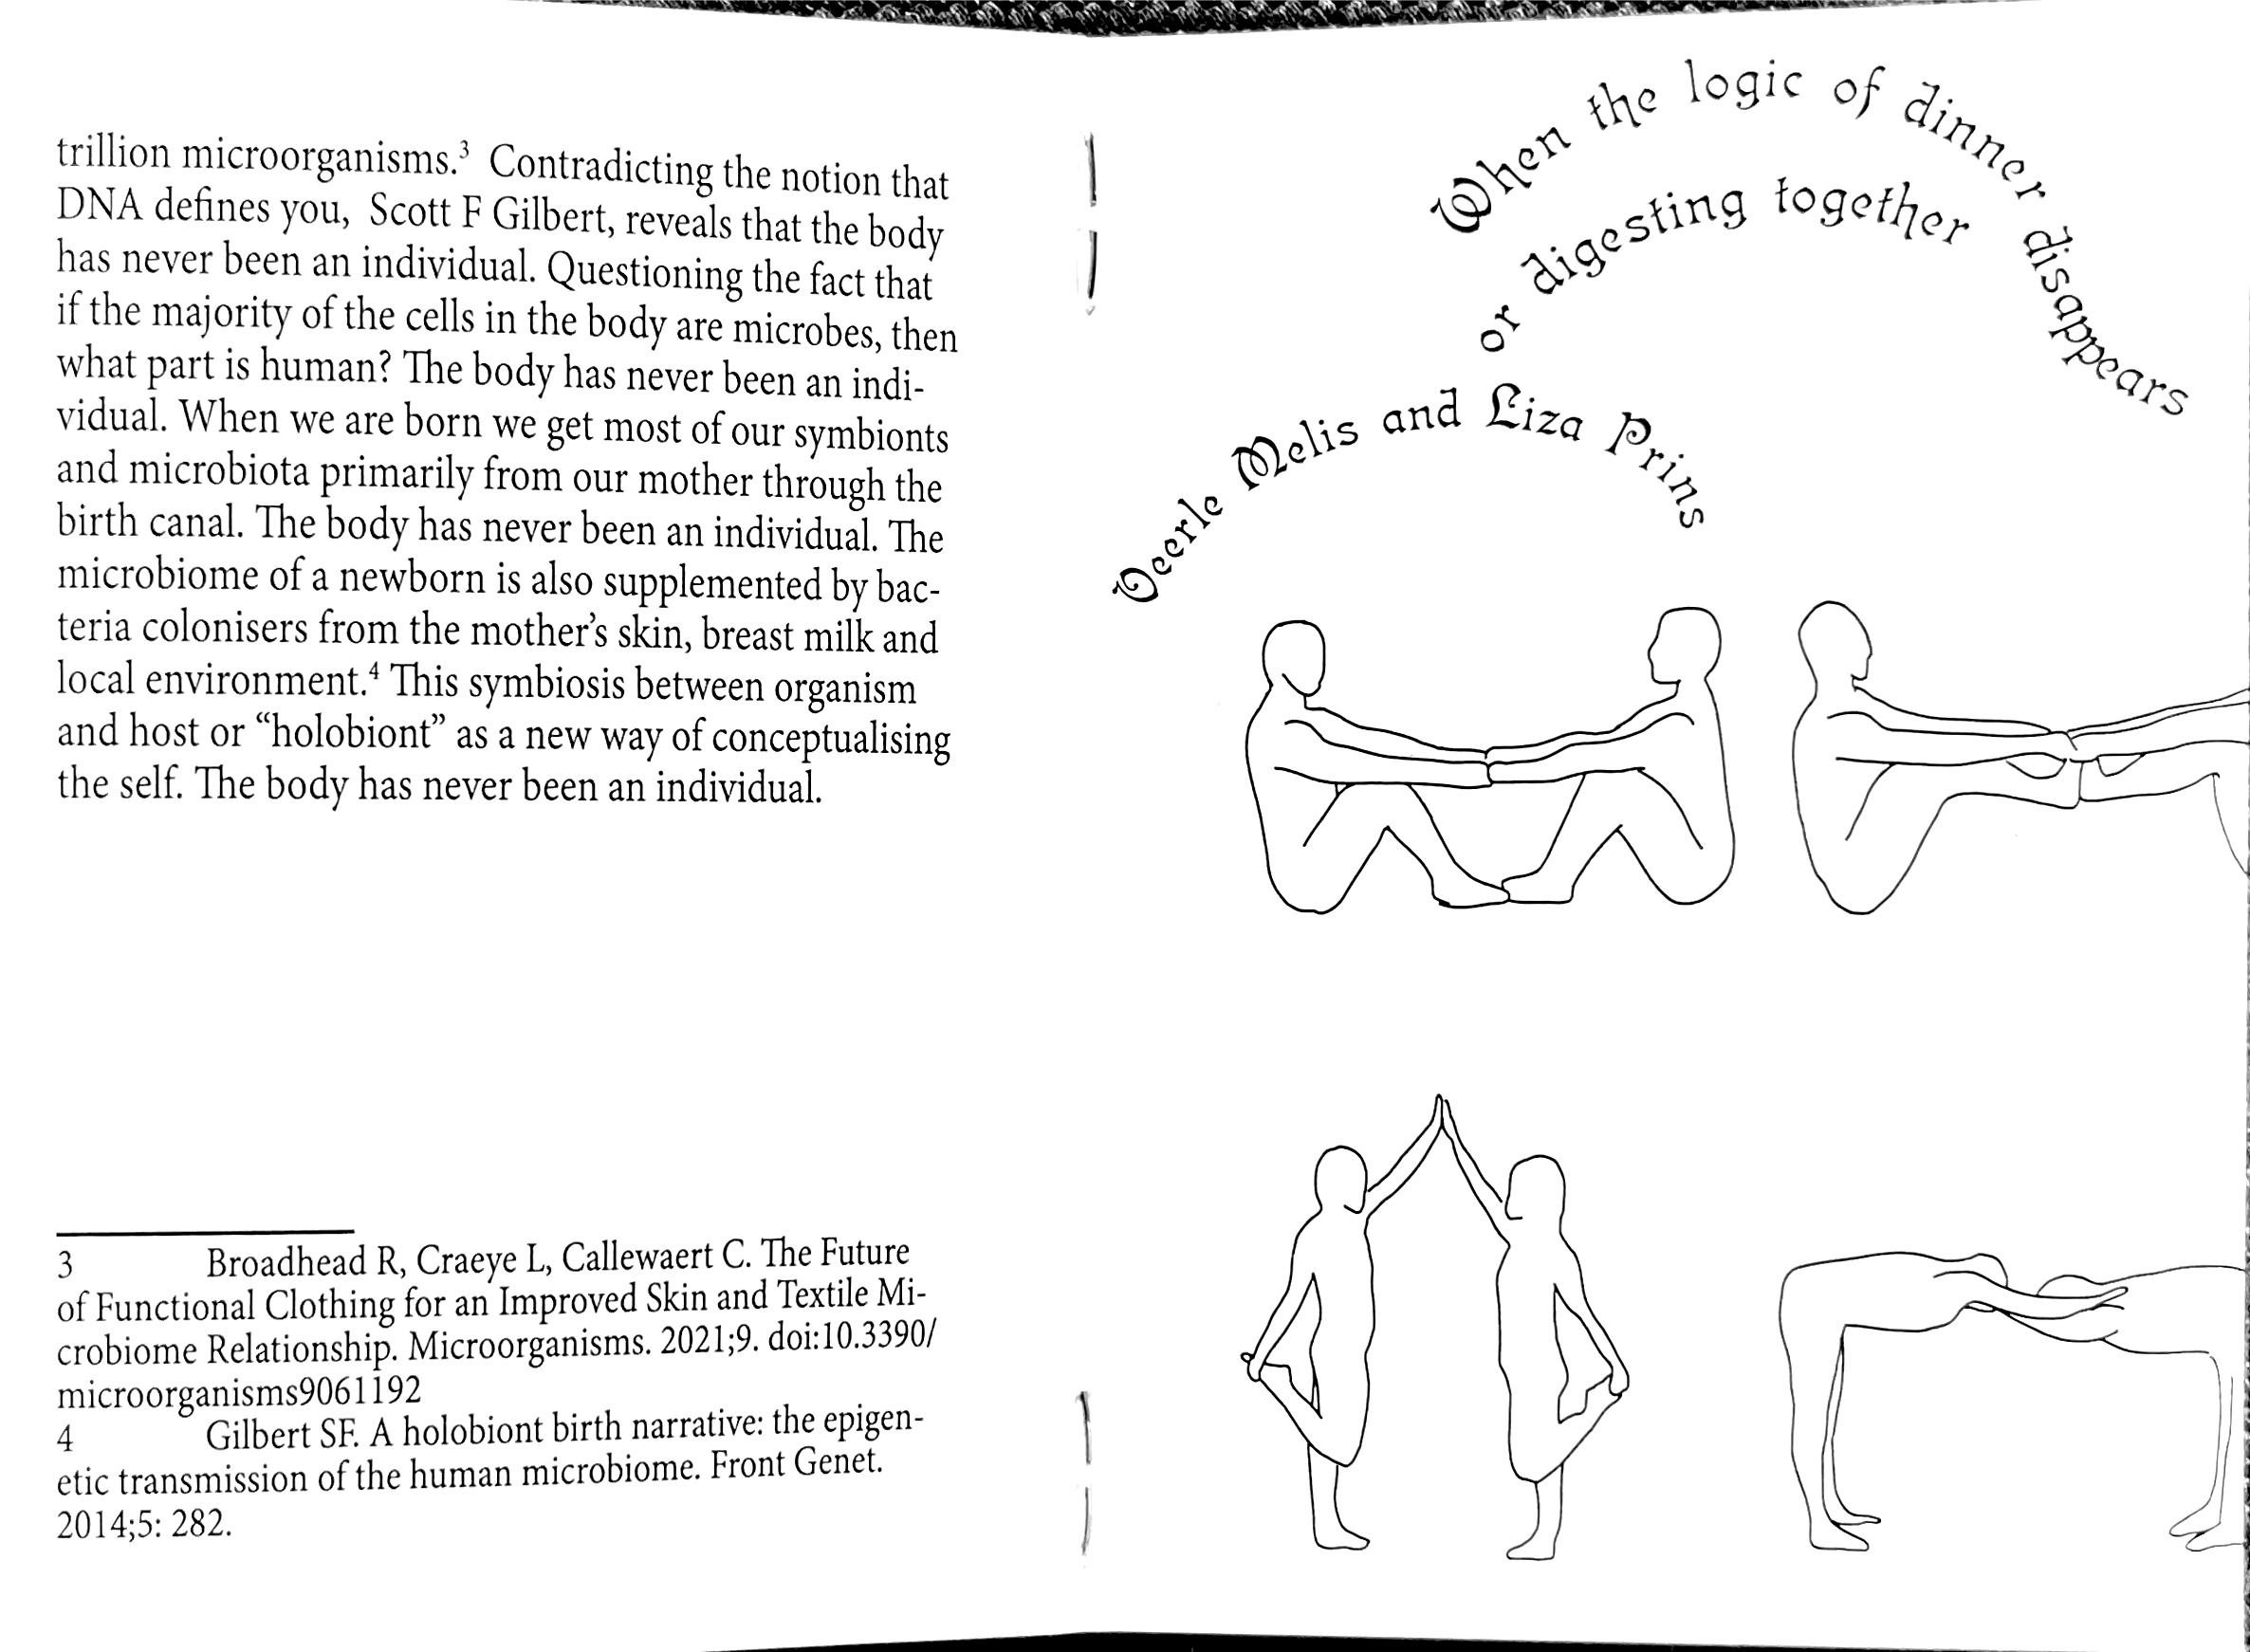 trillion microorganisms.³ Contradicting the notion that
DNA defines you, Scott F Gilbert, reveals that the body
has never been an individual. Questioning the fact that
if the majority of the cells in the body are microbes, then
what part is human? The body has never been an indi-
vidual. When we are born we get most of our symbionts
and microbiota primarily from our mother through the
birth canal. The body has never been an individual. The
microbiome of a newborn is also supplemented by bac-
teria colonisers from the mother’s skin, breast milk and
local environment.⁴ This symbiosis between organism
and host or “holobiont” as a new way of conceptualising
the self. The body has never been an individual.
3 Broadhead R, Craeye L, Callewaert C. The Future
of Functional Clothing for an Improved Skin and Textile Mi-
crobiome Relationship. Microorganisms. 2021;9. doi:10.3390/
microorganisms9061192
4 Gilbert SF. A holobiont birth narrative: the epigen-
etic transmission of the human microbiome. Front Genet.
2014;5: 282.
When the logic of dinner disappears
or digesting together
Veerle Melis and Liza Prins